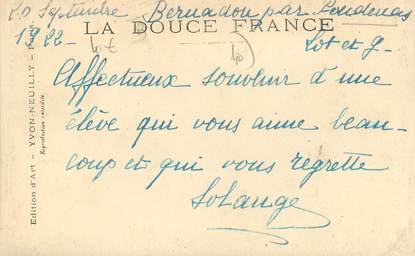 20 Septembre Bernadou par Poudenas
1922 - LA DOUCE FRANCE
6€ Lot et G.
Affectueux souvenir d'une
élève qui vous aime beau-
coup et qui vous regrette
Solange
Edition d'Art — YVON-NEUILLY — Paris
Reproduction interdite.